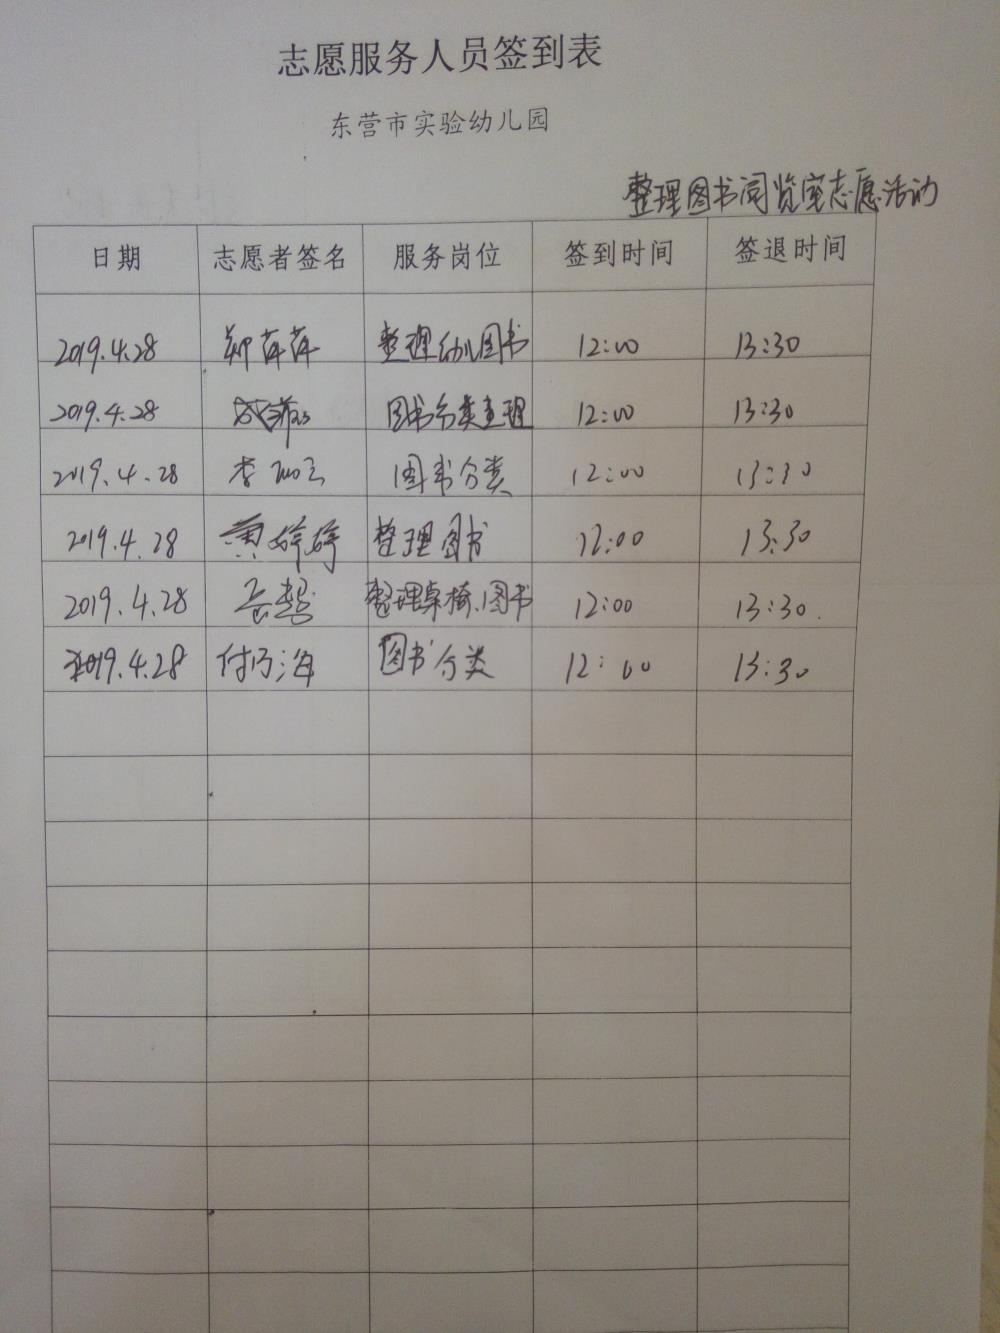 志愿服务人员签到表
东营市实验幼儿园
整理图书阅览室志愿活动
日期 志愿者签名 服务岗位 签到时间 签退时间
2019.4.28 郑萍萍 整理幼儿图书 12:00 13:30
2019.4.28 图书分类整理 12:00 13:30
2019.4.28 李 图书分类 12:00 13:30
2019.4.28 黄婷婷 整理图书 12:00 13:30
2019.4.28 整理桌椅、图书 12:00 13:30.
2019.4.28 付 海 图书分类 12:00 13:30